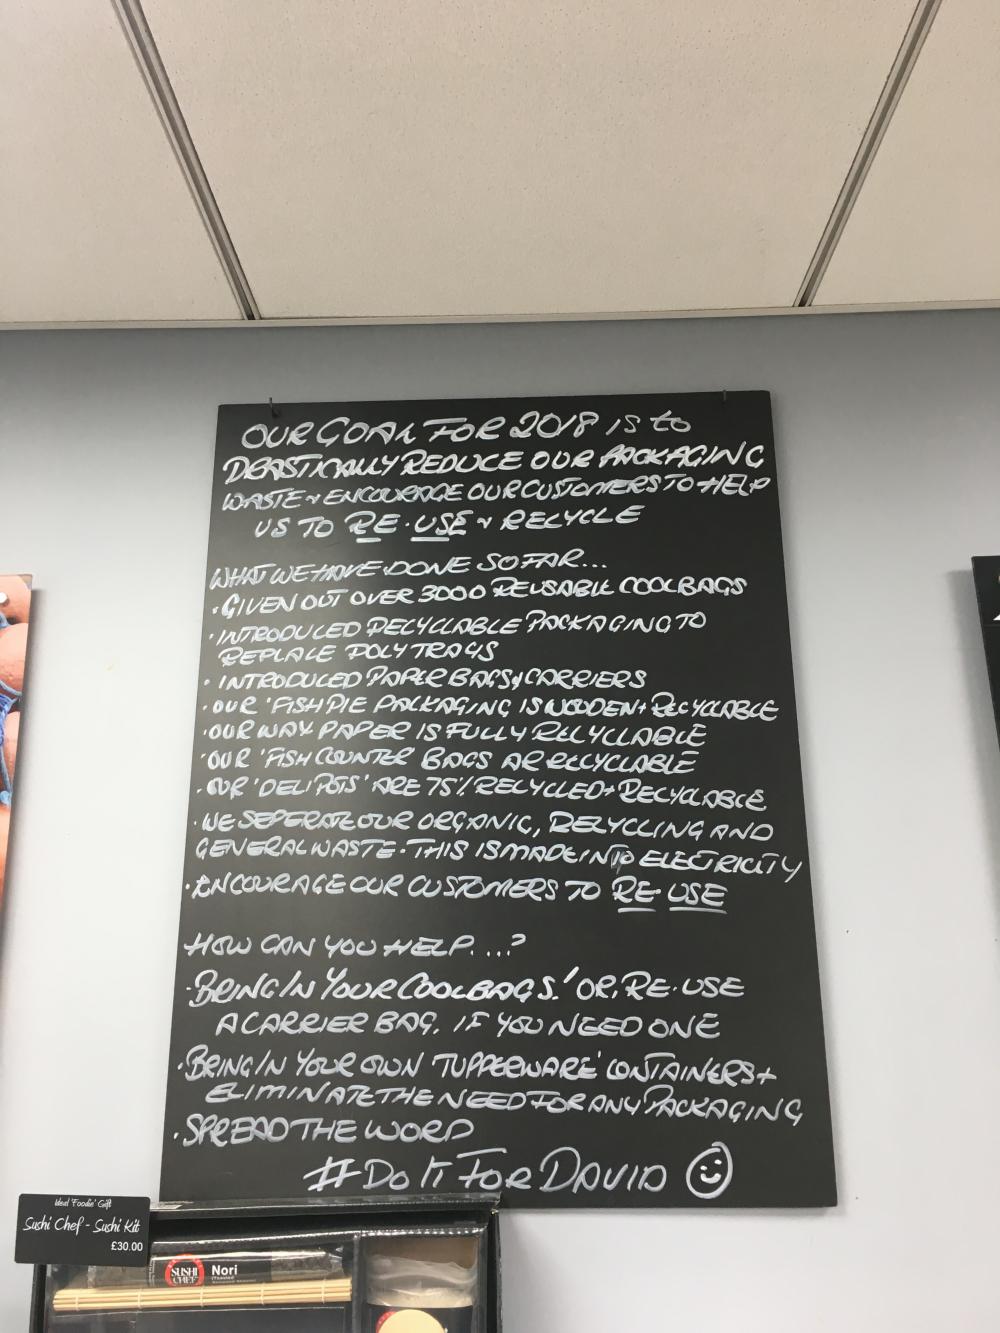 OUR GOAL FOR 2018 IS to
DRASTICALLY REDUCE OUR PACKAGING
WASTE + ENCOURAGE OUR CUSTOMERS TO HELP
US TO RE·USE + RECYCLE
WHAT WE HAVE DONE SO FAR...
· GIVEN OUT OVER 3000 REUSABLE COOLBAGS
· INTRODUCED RECYCLABLE PACKAGING TO
REPLACE POLY TRAYS
· INTRODUCED PAPER BAGS + CARRIERS
· OUR 'FISH PIE PACKAGING IS WOODEN + RECYCLABLE
· OUR WAX PAPER IS FULLY RECYCLABLE
· OUR 'FISH COUNTER' BAGS AR RECYCLABLE
· OUR 'DELI POTS' ARE 75% RECYCLED + RECYCLABLE
· WE SEPERATE OUR ORGANIC, RECYCLING AND
GENERAL WASTE · THIS IS MADE INTO ELECTRICITY
· ENCOURAGE OUR CUSTOMERS TO RE·USE
HOW CAN YOU HELP...?
· BRING IN YOUR COOLBAGS! OR, RE·USE
A CARRIER BAG, IF YOU NEED ONE
· BRING IN YOUR OWN 'TUPPERWARE' CONTAINERS +
ELIMINATE THE NEED FOR ANY PACKAGING
· SPREAD THE WORD
# DO IT FOR DAVID
Ideal 'Foodie' Gift
Sushi Chef - Sushi Kit
£30.00
SUSHI
CHEF
Nori